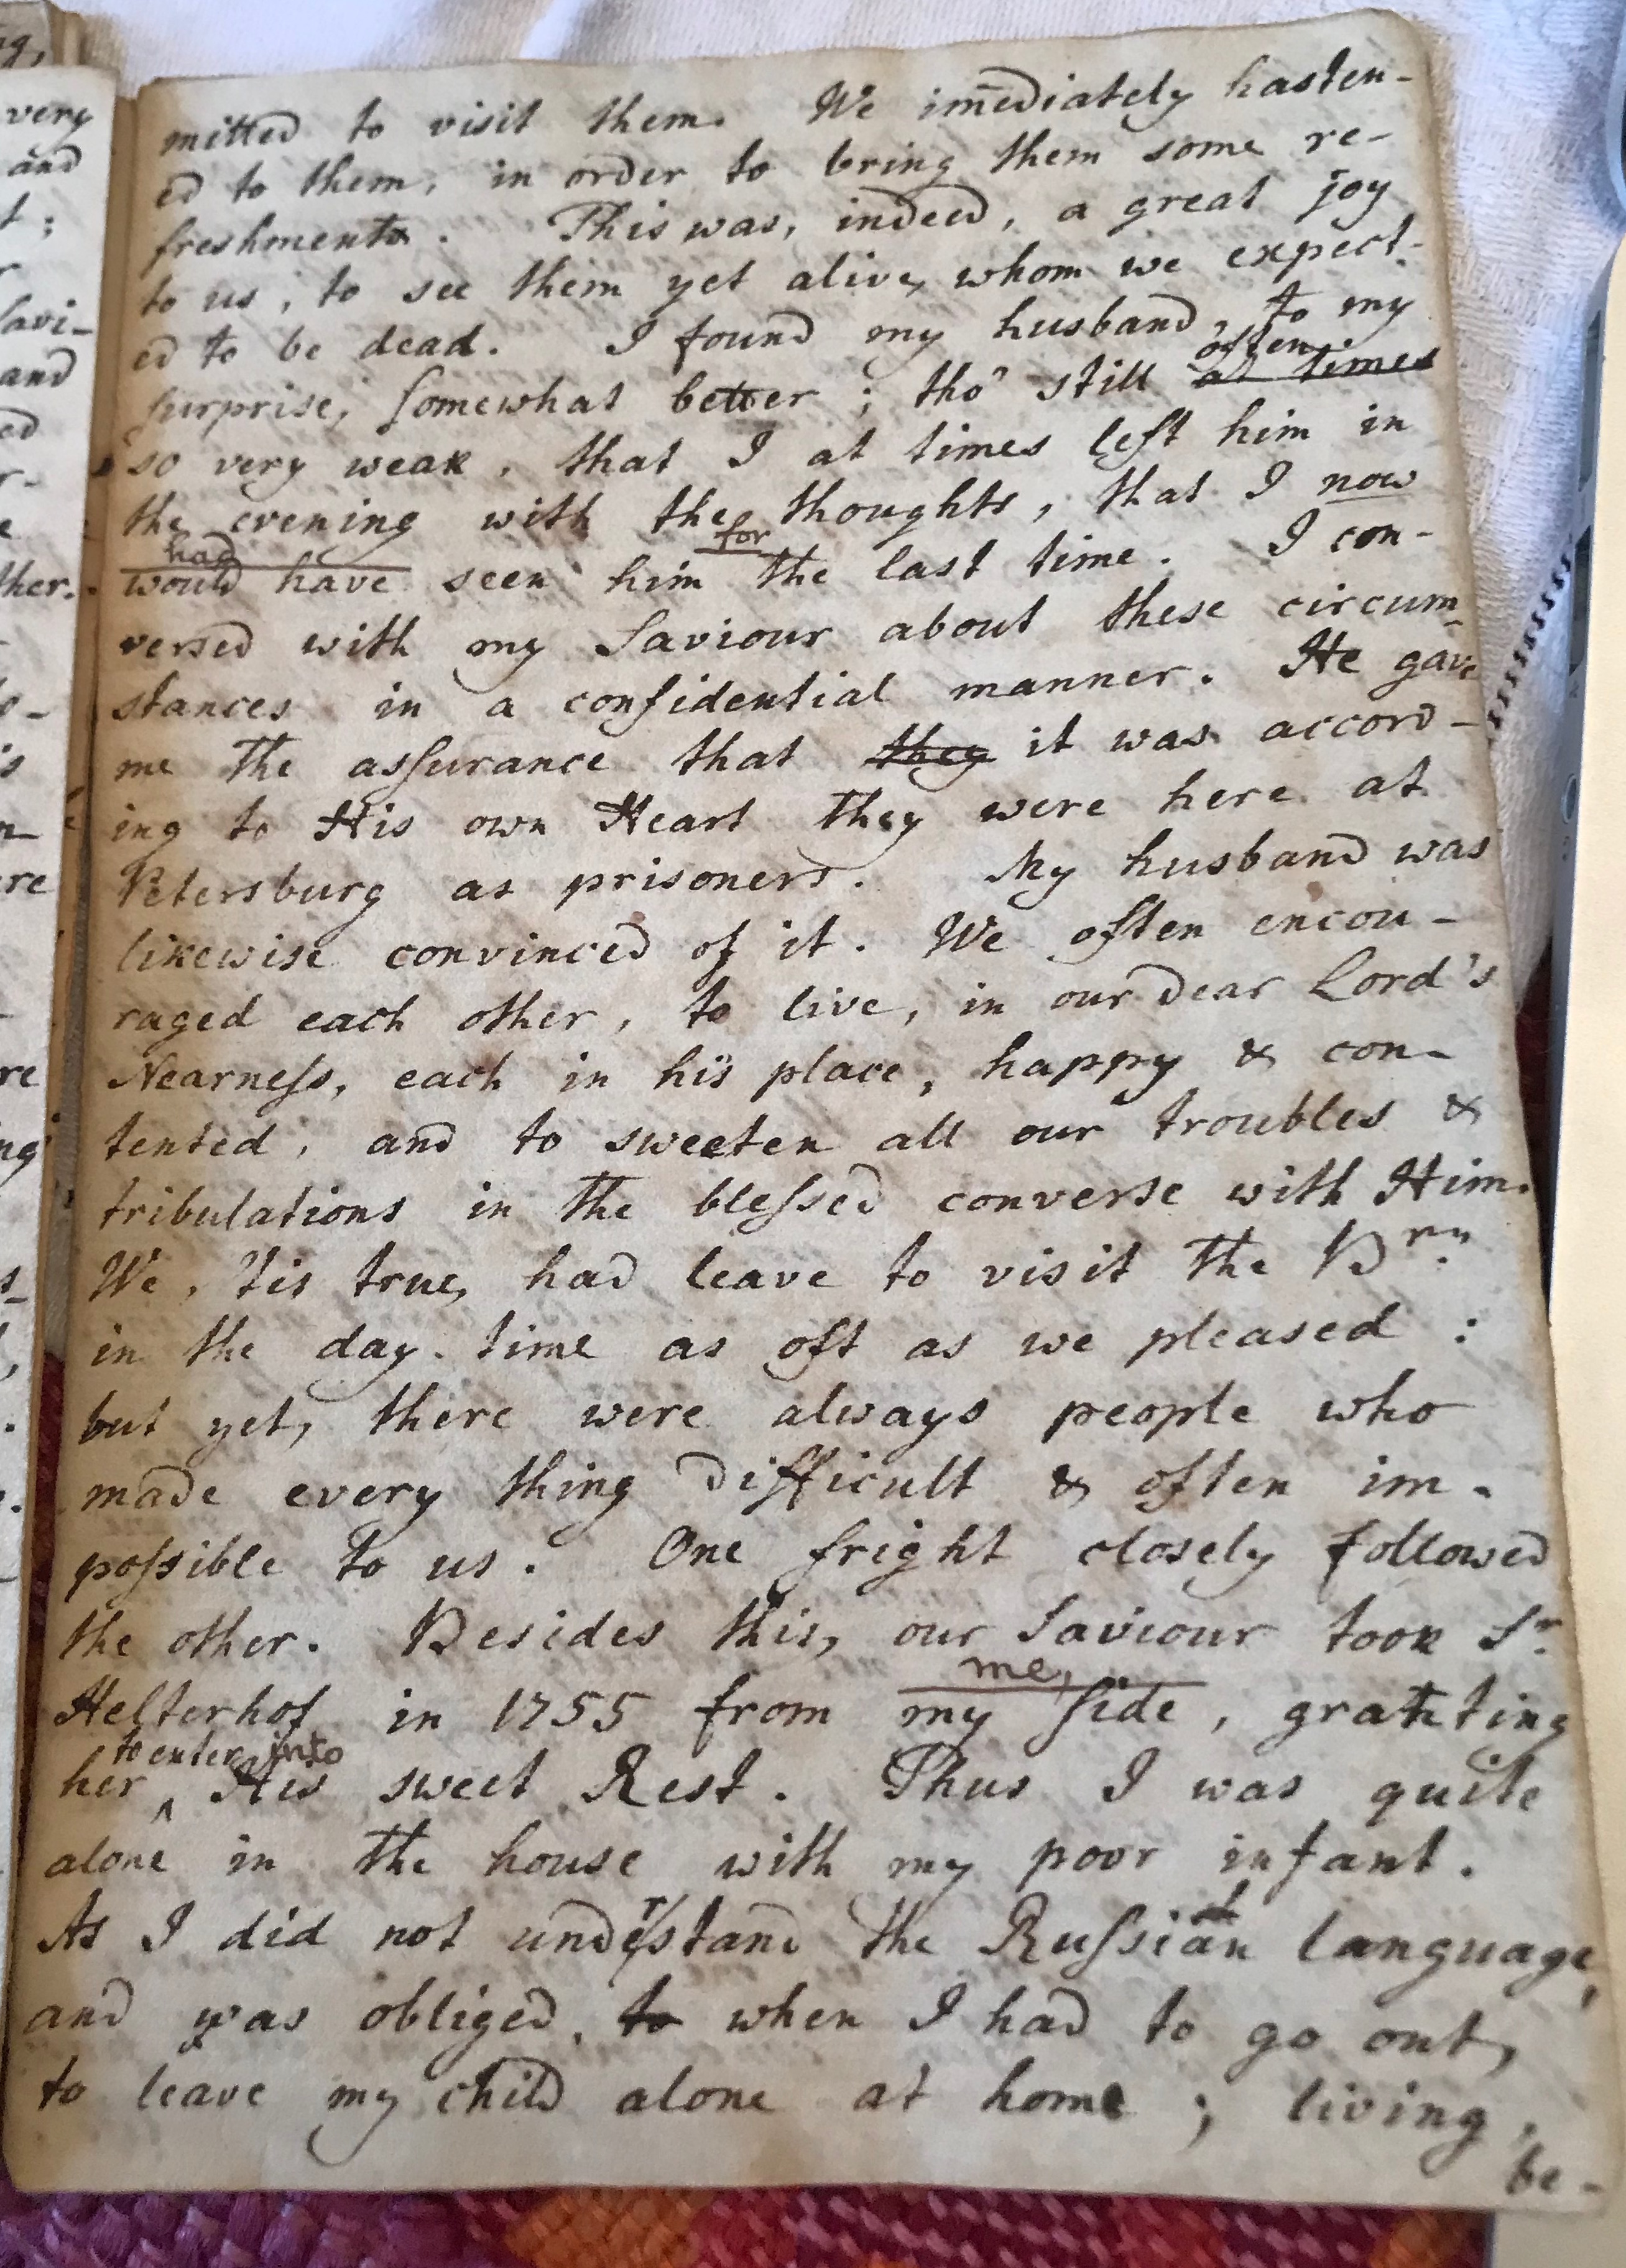 mitted to visit them. We im̄ediately hasten-
ed to them, in order to bring them some re-
freshments. This was, indeed, a great joy
to us, to see them yet alive, whom we expect-
ed to be dead. I found my husband, to my
often
surprise, somewhat better; tho' still at times
so very weak, that I at times left him in
the evening with the thoughts, that I now
had for
would have seen him the last time. I con-
versed with my Saviour about these circum-
stances in a confidential manner. He gave
me the assurance that they it was accord-
ing to His own Heart they were here at
Petersburg as prisoners. My husband was
likewise convinced of it. We often encou-
raged each other, to live, in our dear Lord's
Nearness, each in his place, happy & con-
tented, and to sweeten all our troubles &
tribulations in the blessed converse with Him.
We, 'tis true, had leave to visit the Brn
in the day-time as oft as we pleased:
but yet, there were always people who
made every thing difficult & often im-
possible to us. One fright closely followed
the other. Besides this, our Saviour took Sr.
me,
Helterhof in 1755 from my side, granting
to enter into
her ^ His sweet Rest. Thus I was quite
alone in the house with my poor infant.
As I did not understand the Russian language,
and was obliged, to when I had to go out,
to leave my child alone at home; living,
be-
very
and
t;
Savi-
and
ed
r-
e
ther.
o-
is
n-
ere
re
ng